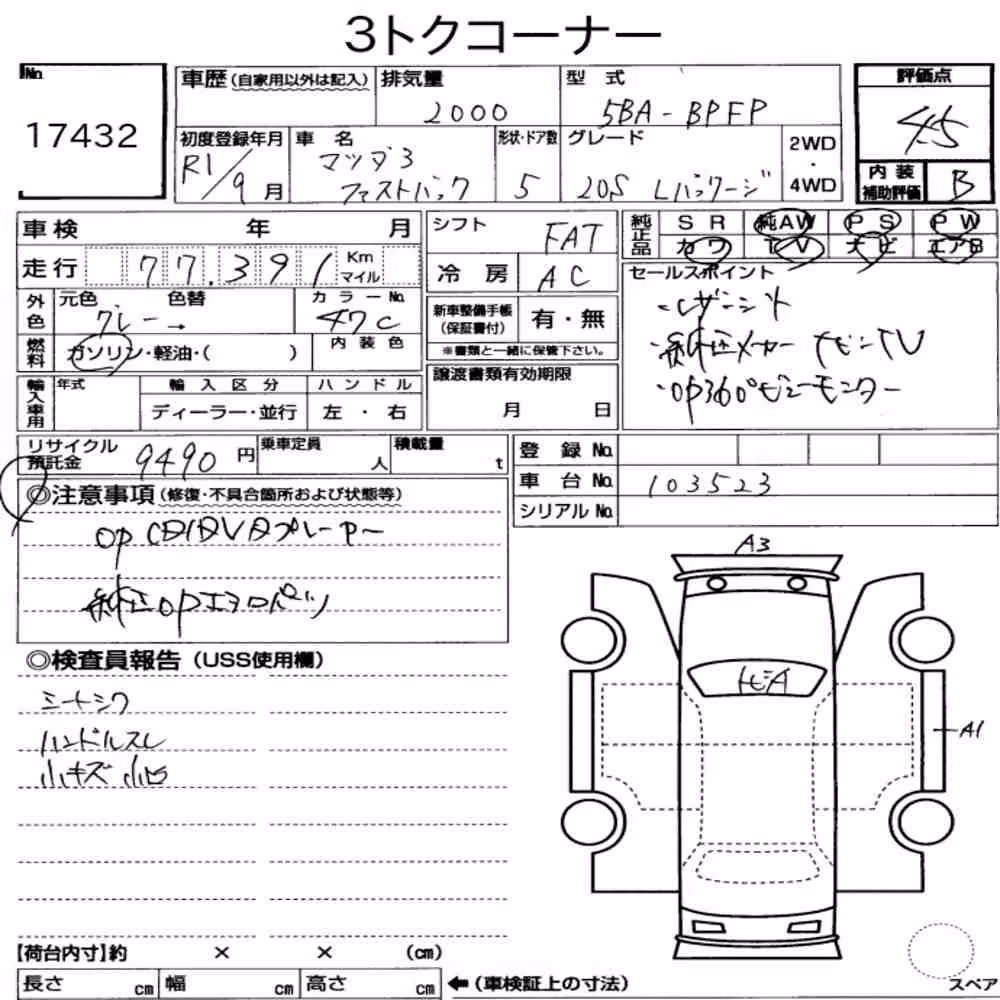 3トクコーナー
No.
17432
車歴（自家用以外は記入）
排気量
2000
型式
5BA-BPFP
評価点
4.5
初度登録年月
R1/9月
車名
マツダ3
ファストバック
形状・ドア数
5
グレード
20S Lパッケージ
2WD
・
4WD
内装
補助評価
B
車検 年 月
走行 77,391 Km
マイル
シフト
FAT
冷房
AC
純正品
SR 純AW PS PW
カワ TV ナビ エアB
外色
元色 色替
グレー→
カラーNo.
47C
燃料
ガソリン・軽油・( )
内装色
新車整備手帳
（保証書付）
有・無
※書類と一緒に保管下さい。
セールスポイント
・レザーシート
・純正メーカーナビTV
・OP360°ビューモニター
輸入車用
年式
輸入区分
ディーラー・並行
ハンドル
左・右
譲渡書類有効期限
月 日
リサイクル
預託金
9490円
乗車定員
人
積載量
t
登録No.
車台No.
103523
シリアルNo.
◎注意事項（修復・不具合箇所および状態等）
OP CD/DVDプレーヤー
純正OPエアロパーツ
◎検査員報告（USS使用欄）
シートシワ
ハンドルスレ
小キズ 小凹
A3
トビA
A1
【荷台内寸】約 × × (cm)
長さ cm 幅 cm 高さ cm ←（車検証上の寸法）
スペア